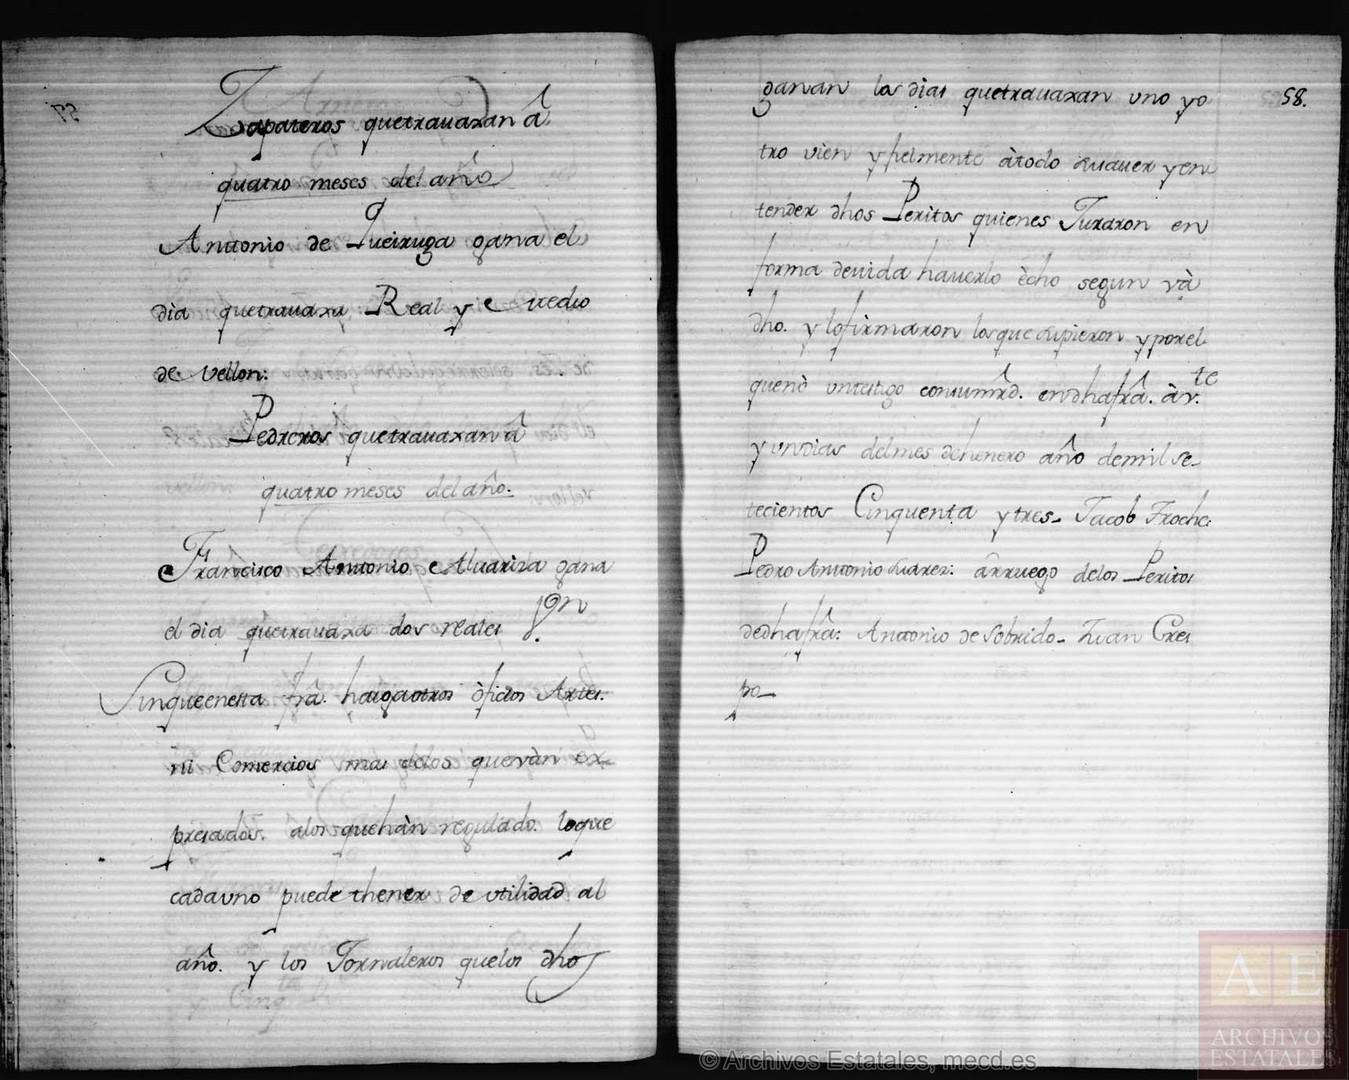 Zapateros quetrauaxan â
quatro meses del año
Antonio de Queiruga gana el
dia quetrauaxa Real y medio
de vellon:
Pedreros quetrauaxan â
quatro meses del año.
Francisco Antonio Aluariza gana
el dia quetrauaxa dos reales
Sinqueenesta frâ. haigaotros ofizios Artes.
ni Comercios mas delos queván ex-
presados. alos quehàn regulado. loque
cadauno puede thener de utilidad al
año. y los Jornaleros quelos dhos
58.
ganan los dias quetrauaxan uno yo
tro vien yfielmente àtodo suauer yen
tender dhos Peritos quienes Juraron en
forma deuida hauerlo écho segun và
dho. y lofirmaron losque supieron yporel
quenò untestigo endhafrâ. àv.te
y undias delmes dehenero año demilse-
tecientos Cinquenta ytres- Jacob Troche
Pedro Antonio suarez: arruego delos Peritos
dedhafrâ: Antonio deSobrido- Juan Cres
po-
© Archivos Estatales, mecd.es
AE
ARCHIVOS
ESTATALES